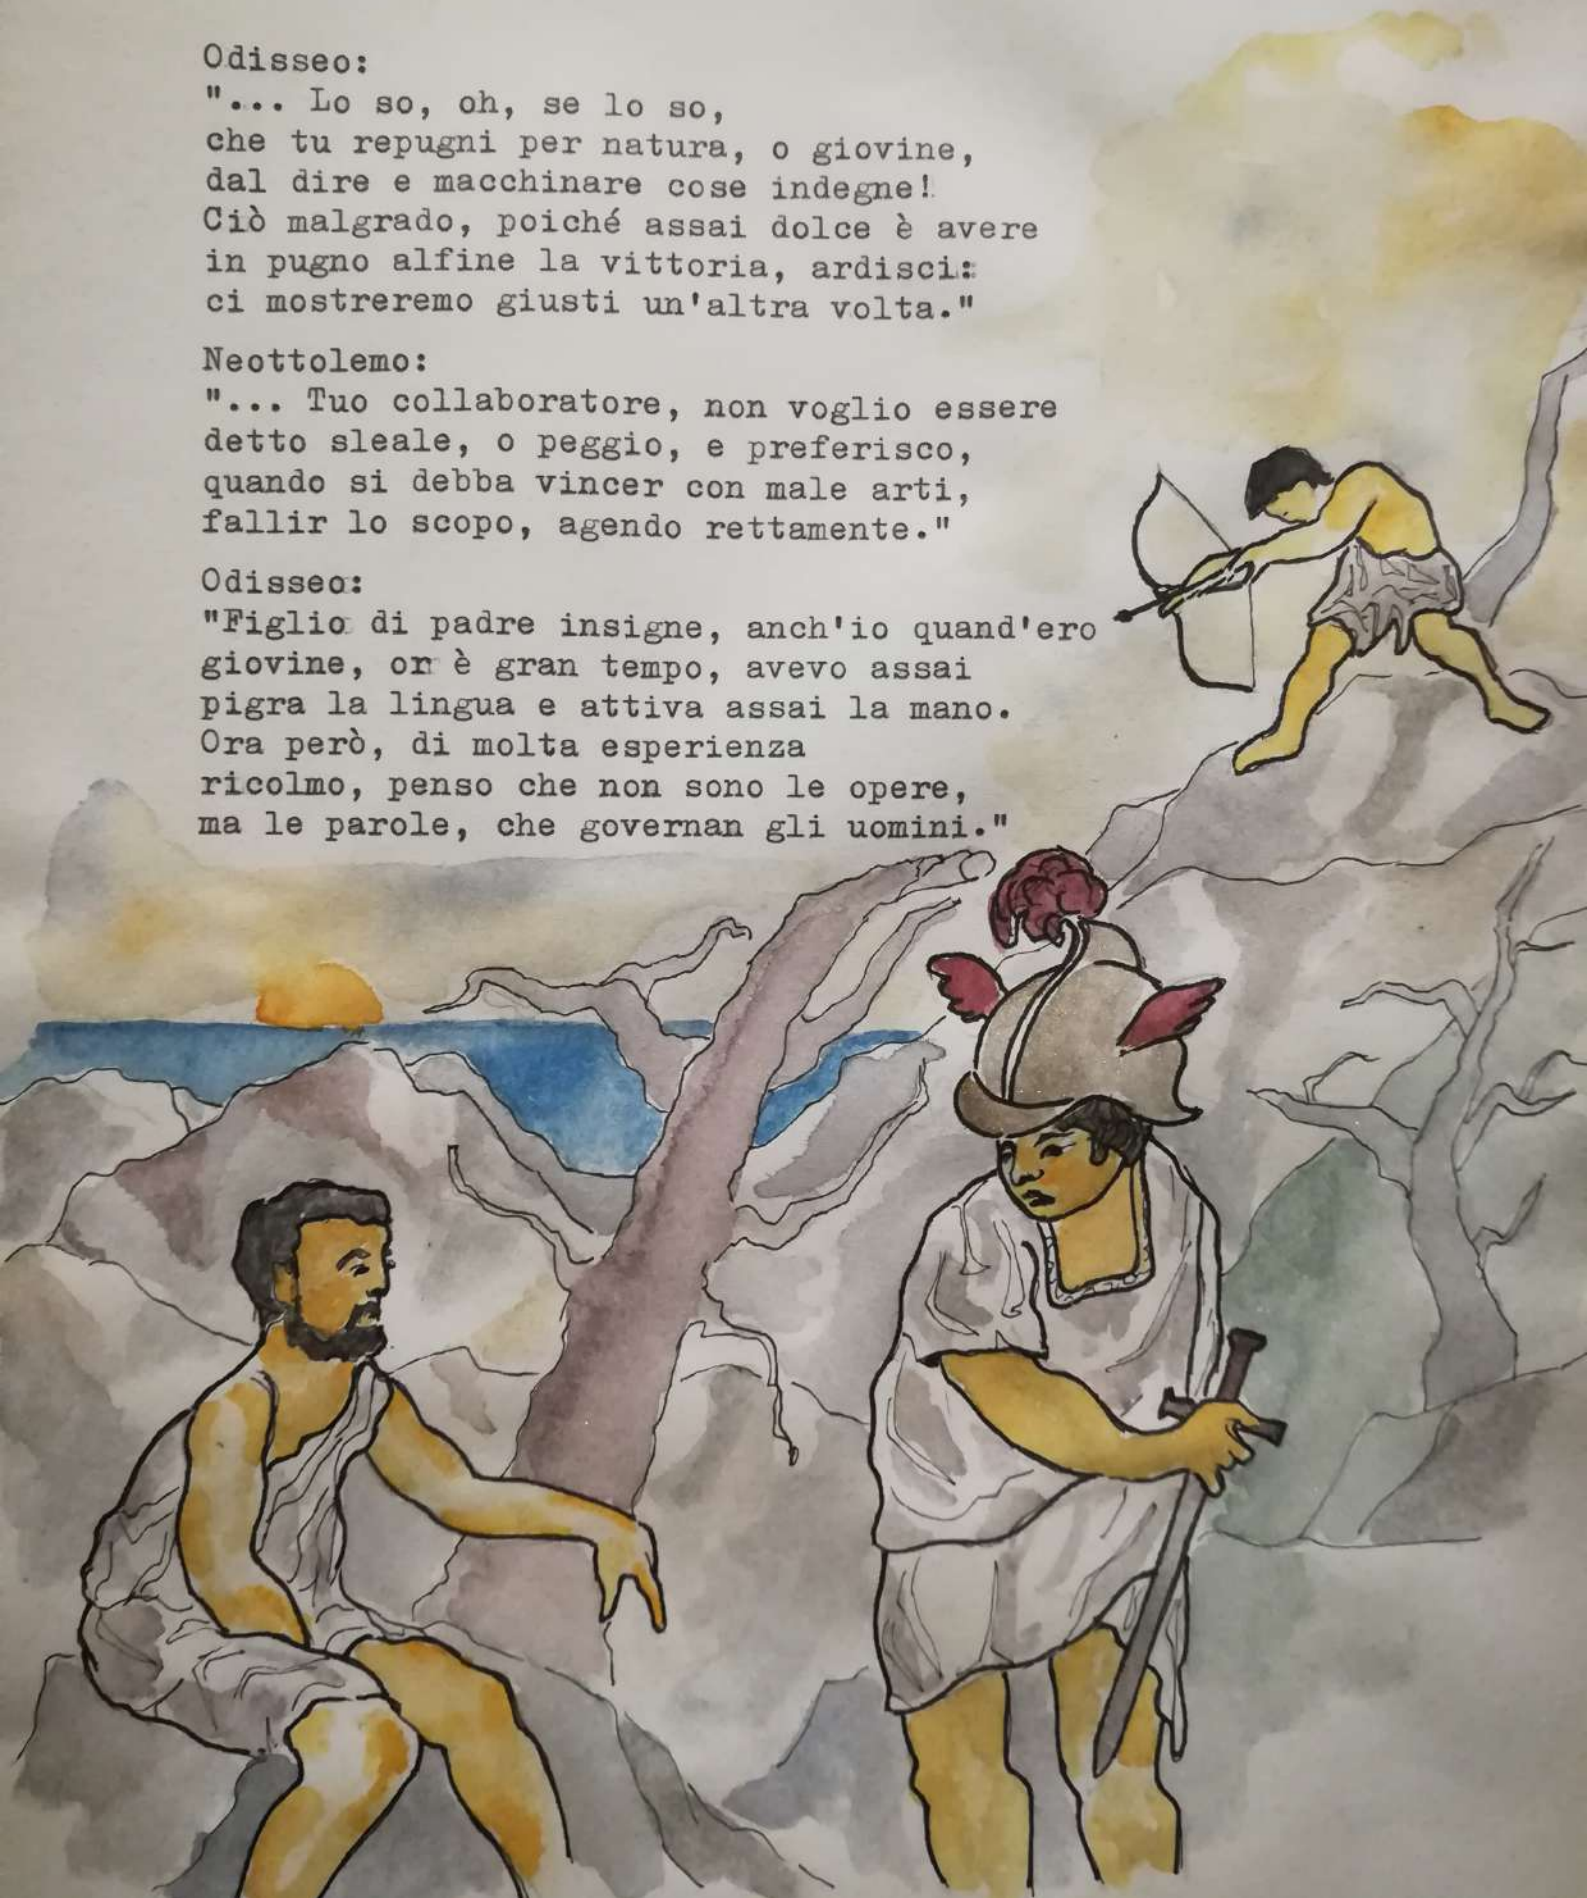 Odisseo:
"... Lo so, oh, se lo so,
che tu repugni per natura, o giovine,
dal dire e macchinare cose indegne!
Ciò malgrado, poiché assai dolce è avere
in pugno alfine la vittoria, ardisci:
ci mostreremo giusti un'altra volta."
Neottolemo:
"... Tuo collaboratore, non voglio essere
detto sleale, o peggio, e preferisco,
quando si debba vincer con male arti,
fallir lo scopo, agendo rettamente."
Odisseo:
"Figlio di padre insigne, anch'io quand'ero
giovine, or è gran tempo, avevo assai
pigra la lingua e attiva assai la mano.
Ora però, di molta esperienza
ricolmo, penso che non sono le opere,
ma le parole, che governan gli uomini."